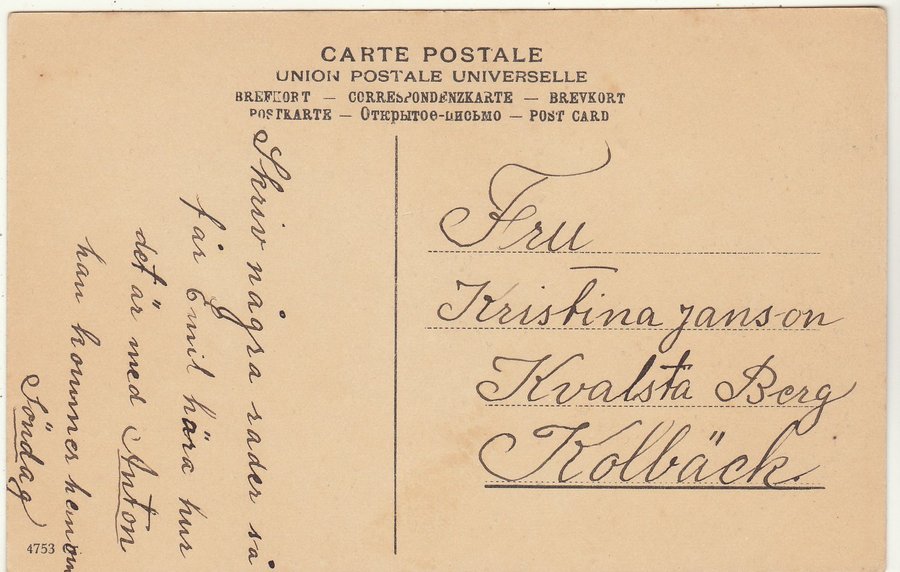 CARTE POSTALE
UNION POSTALE UNIVERSELLE
BREFKORT — CORRESPONDENZKARTE — BREVKORT
POSTKARTE — Открытое-письмо — POST CARD
Skriv några rader så
får Emil hära hur
det är med Anton
han kommer hem om
Söndag
Fru
Kristina Janson
Kvalsta Berg
Kolbäck
4753